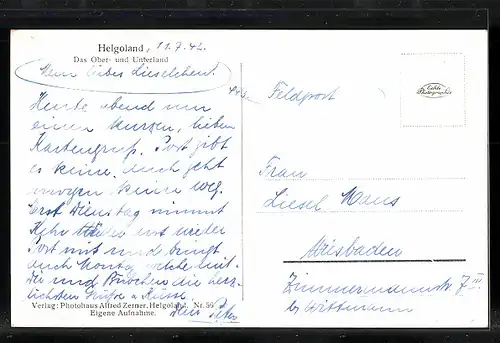 Helgoland, 11.7.42.
Das Ober- und Unterland
Mein liebes Lieselchen!
Heute abend nur
einen kurzen, lieben
Kartengruß. Post gibt
es keine. Auch geht
morgen keine weg.
Erst Dienstag nimmt
uns wieder
Post mit und bringt
auch Montag welche mit.
Dir und die herz-
lichsten Grüße u. Küsse.
Dein Peter
Verlag: Photohaus Alfred Zerner, Helgoland. Nr. 56
Eigene Aufnahme.
Feldpost
Echte
Photographie
Frau
Liesel Maus
Wiesbaden
Zimmermannstr. 7 III
by Wittmann